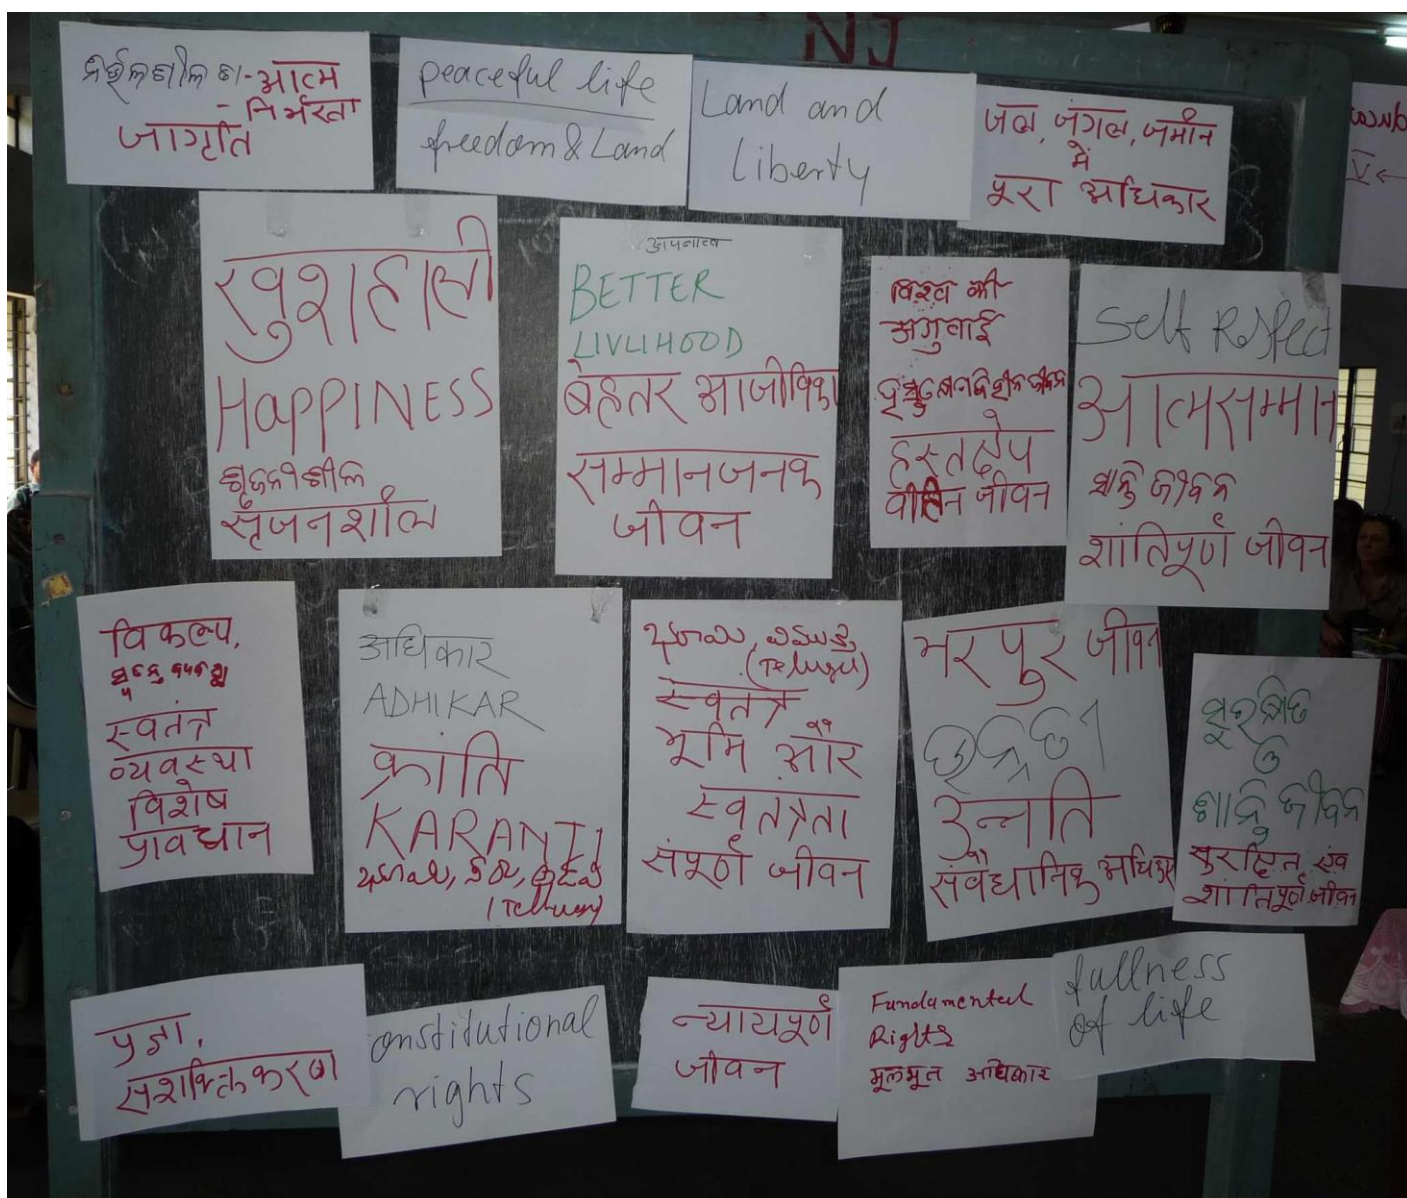 NJ
आत्म
निर्भरता
जागृति
peaceful life
freedom & Land
Land and
Liberty
जल, जंगल, जमीन
में
पूरा अधिकार
खुशहाली
HAPPINESS
ସୃଜନଶୀଳ
सृजनशील
अपनात्व
BETTER
LIVLIHOOD
बेहतर आजीविका
सम्मानजनक
जीवन
विश्व की
अगुवाई
हस्तक्षेप
विहिन जीवन
Self Respect
आत्मसम्मान
ଶାନ୍ତି ଜୀବନ
शांतिपूर्ण जीवन
विकल्प,
स्वतंत्र
व्यवस्था
विशेष
प्रावधान
अधिकार
ADHIKAR
क्रांति
KARANTI
(Telugu)
భూమి, విముక్తి
(Telugu)
स्वतंत्र
भूमि और
स्वतंत्रता
संपूर्ण जीवन
भरपुर जीवन
ଉନ୍ନତି
उन्नति
संवैधानिक अधिकार
ସୁରକ୍ଷିତ
ଓ
ଶାନ୍ତି ଜୀବନ
सुरक्षित एवं
शांतिपूर्ण जीवन
प्रज्ञा,
सशक्तिकरण
onstitutional
rights
न्यायपूर्ण
जीवन
Fundamented
Rights
मूलभूत अधिकार
fullness
of life